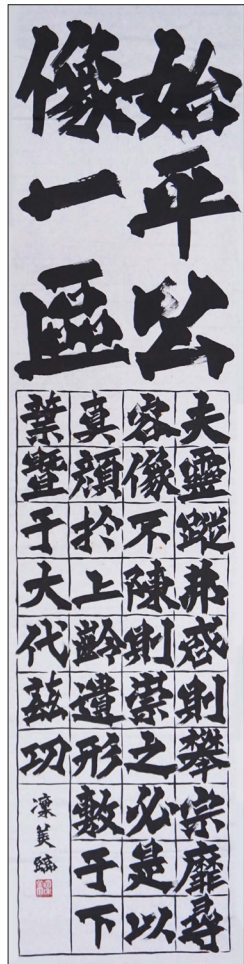 始平公
像一區
夫靈蹤弗惑則攀宗靡尋
容像不陳則崇之必是以
真顏於上齡遺形敷于下
葉暨于大代茲功
凜美臨